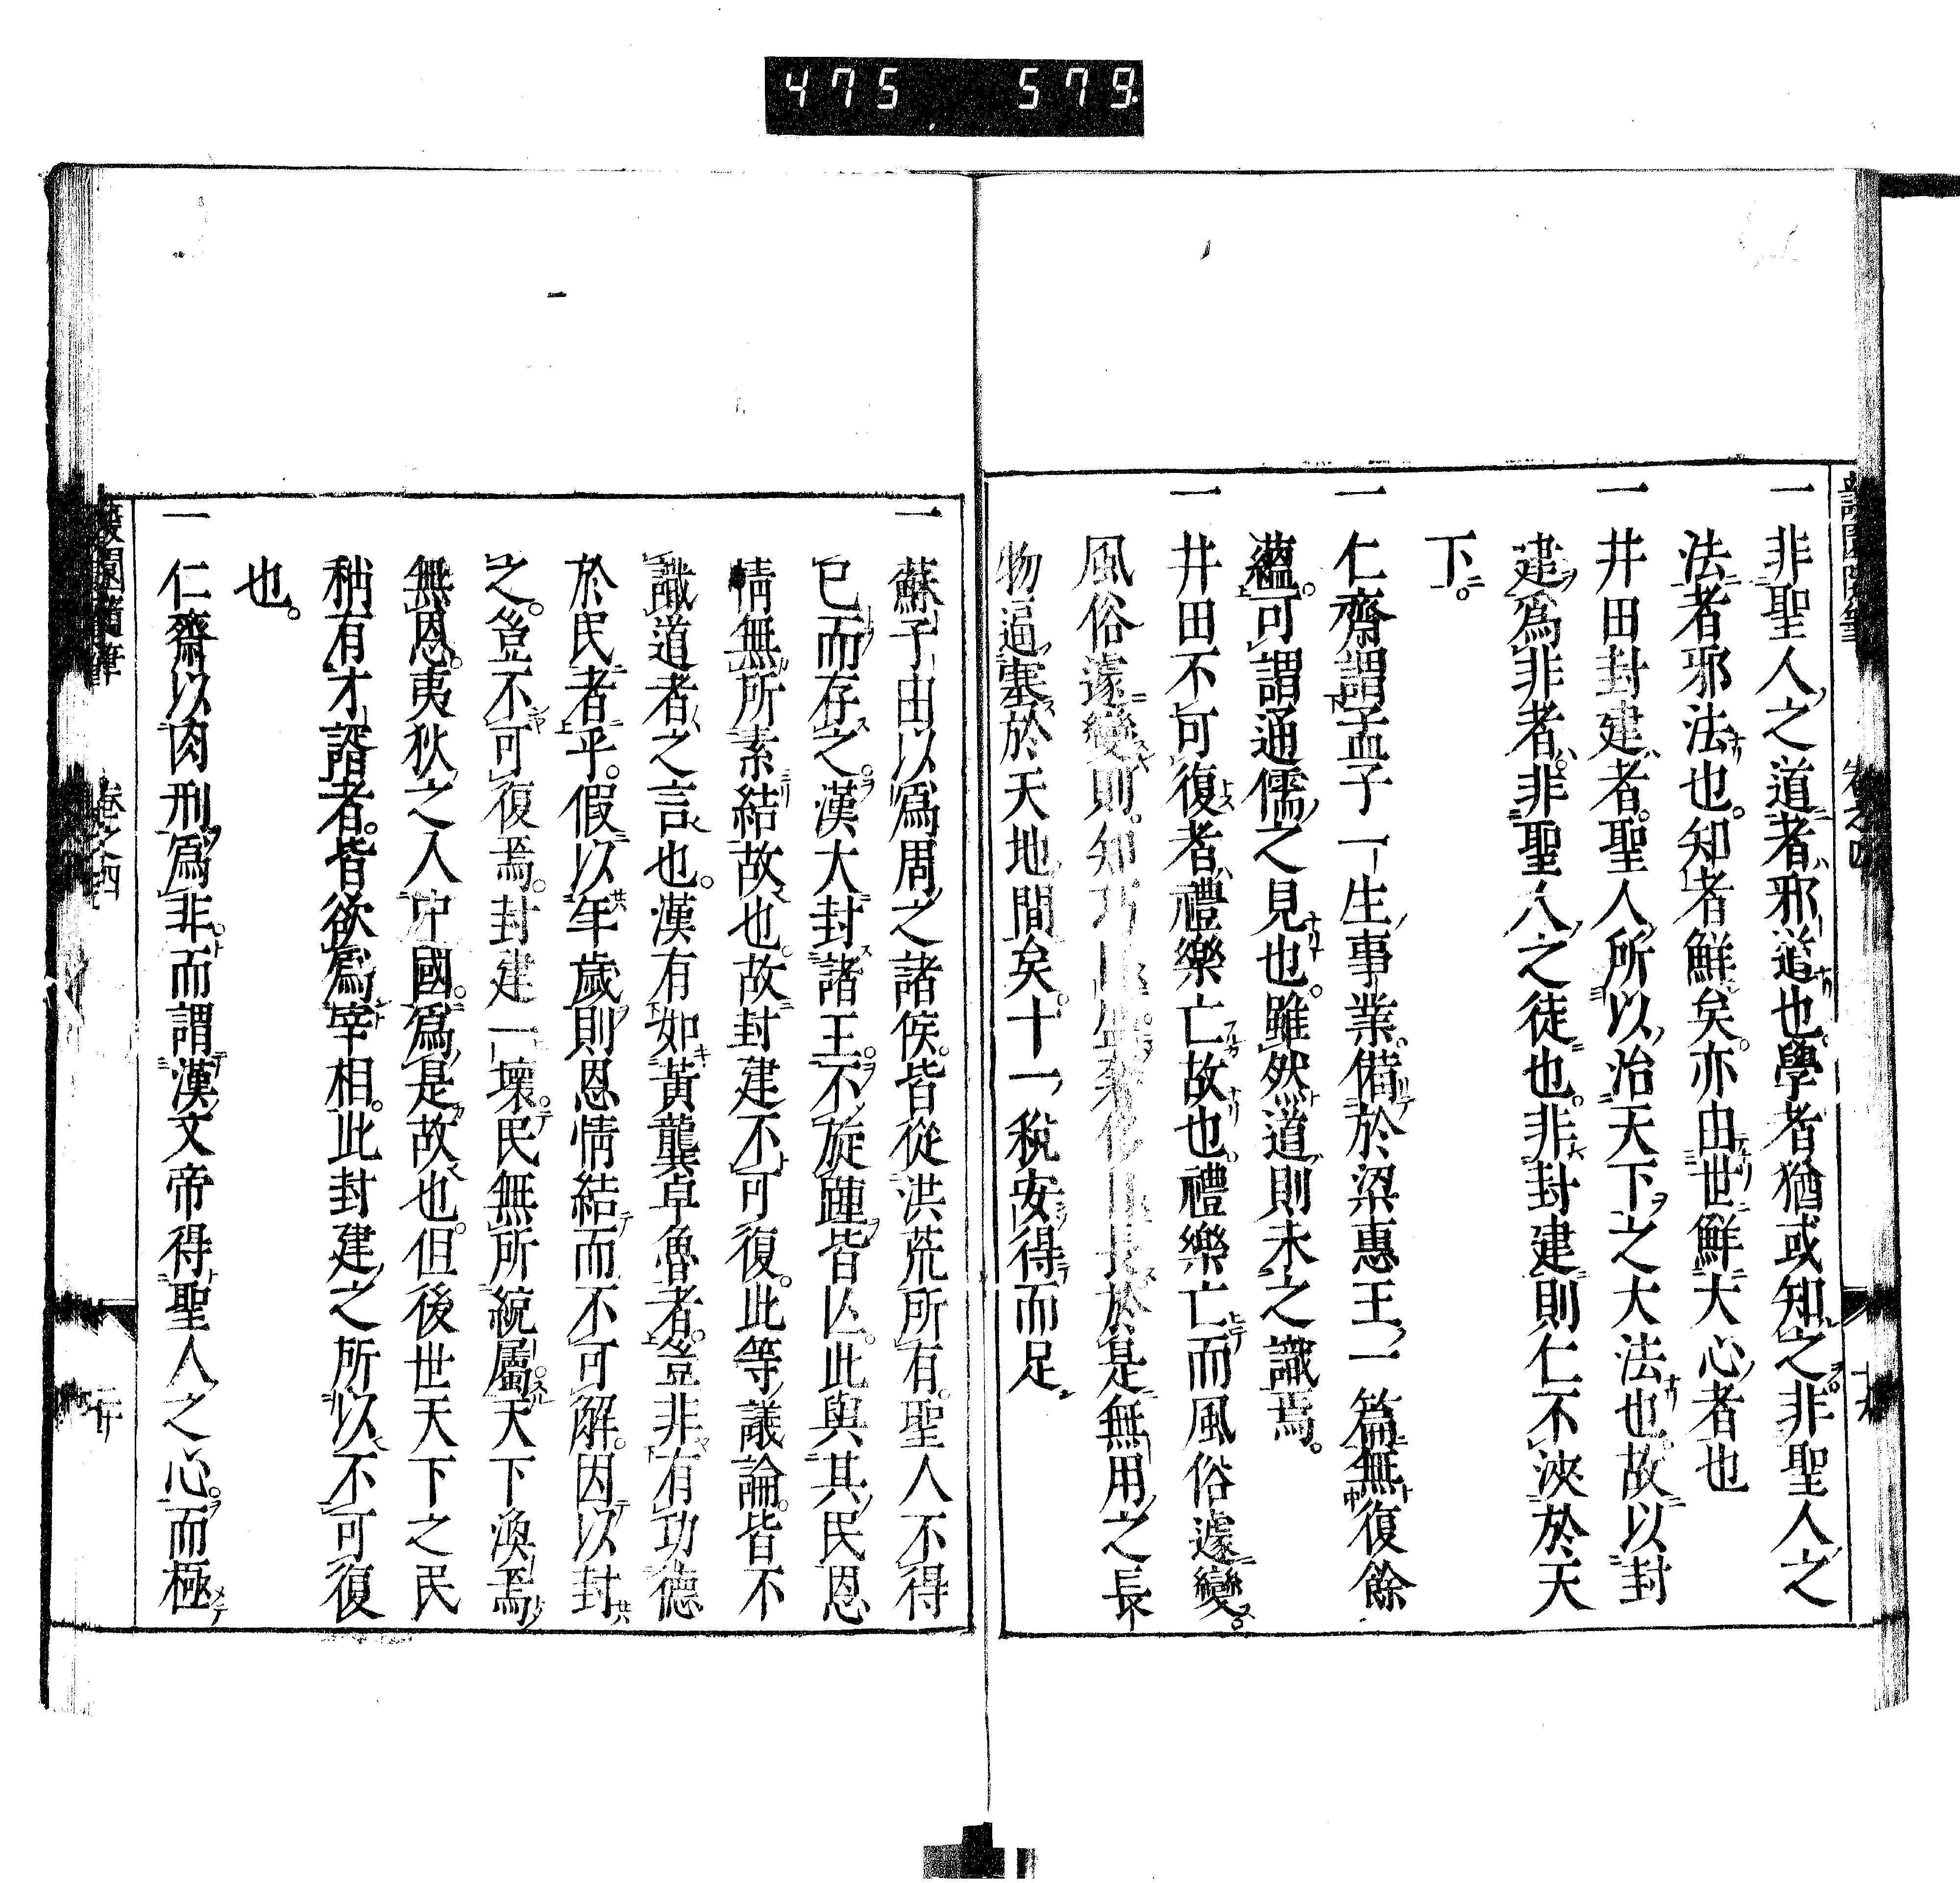 475 579
一非聖人之道者邪道也學者猶或知之非聖人之
法者邪法也知者鮮矣亦由世鮮大心者也
一井田封建者聖人所以治天下之大法也故以封
建爲非者非聖人之徒也非封建則仁不浹於天
下
一仁齋謂孟子一生事業備於梁惠王一篇無復餘
蘊可謂通儒之見也雖然道則未之識焉
一井田不可復者禮樂亡故也禮樂亡而風俗遽變
風俗遽變則知巧長於是無用之長
物逼塞於天地間矣十一稅安得而足
一蘇子由以爲周之諸侯皆從洪荒所有聖人不得
已而存之漢大封諸王不旋踵皆亾此與其民恩
情無所素結故也故封建不可復此等議論皆不
識道者之言也漢有如黃龔卓魯者豈非有功德
於民者乎假以年歲則恩情結而不可解因以封
之豈不可復焉封建一壞民無所統屬天下渙焉
無恩夷狄之入中國爲是故也但後世天下之民
稍有才諝者皆欲爲宰相此封建之所以不可復
也
一仁齋以肉刑爲非而謂漢文帝得聖人之心而極
卷之四